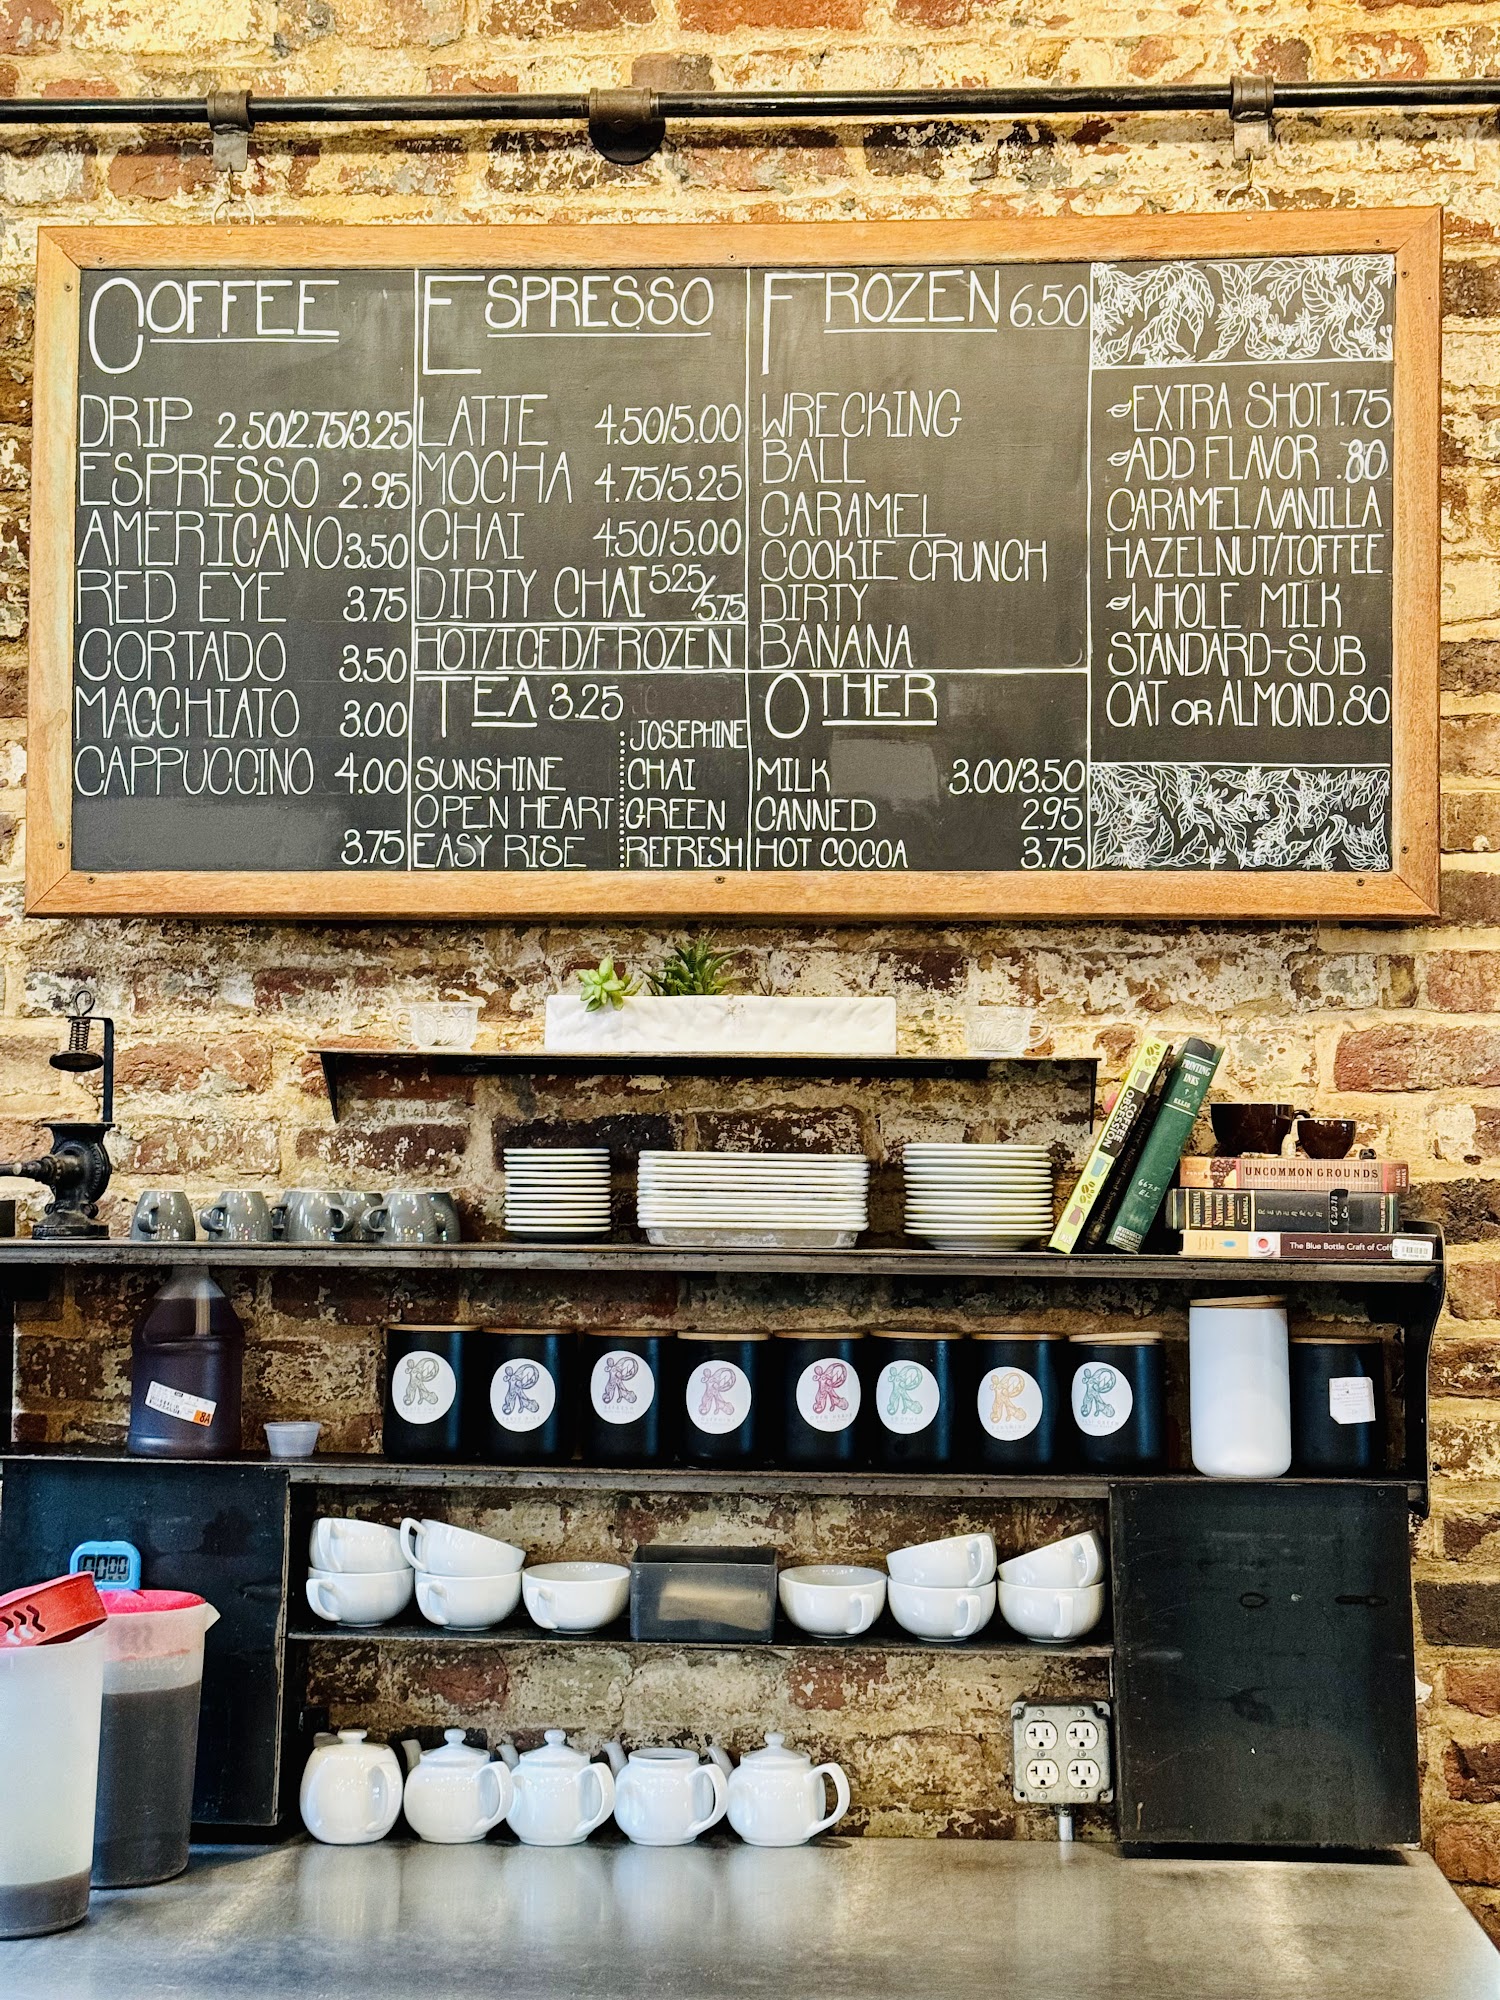 COFFEE
DRIP 2.50/2.75/3.25
ESPRESSO 2.95
AMERICANO 3.50
RED EYE 3.75
CORTADO 3.50
MACCHIATO 3.00
CAPPUCCINO 4.00
3.75
ESPRESSO
LATTE 4.50/5.00
MOCHA 4.75/5.25
CHAI 4.50/5.00
DIRTY CHAI 5.25/5.75
HOT/ICED/FROZEN
TEA 3.25
SUNSHINE
OPEN HEART
EASY RISE
JOSEPHINE
CHAI
GREEN
REFRESH
FROZEN 6.50
WRECKING
BALL
CARAMEL
COOKIE CRUNCH
DIRTY
BANANA
OTHER
MILK 3.00/3.50
CANNED 2.95
HOT COCOA 3.75
EXTRA SHOT 1.75
ADD FLAVOR .80
CARAMEL/VANILLA
HAZELNUT/TOFFEE
WHOLE MILK
STANDARD-SUB
OAT OR ALMOND .80
COFFEE OBSESSION
PRINTING
INKS
ELLIS
667.5
EL
UNCOMMON GROUNDS
RESEARCH
The Blue Bottle Craft of Cof
8A
00:00
R
R
R
R
R
R
R
R